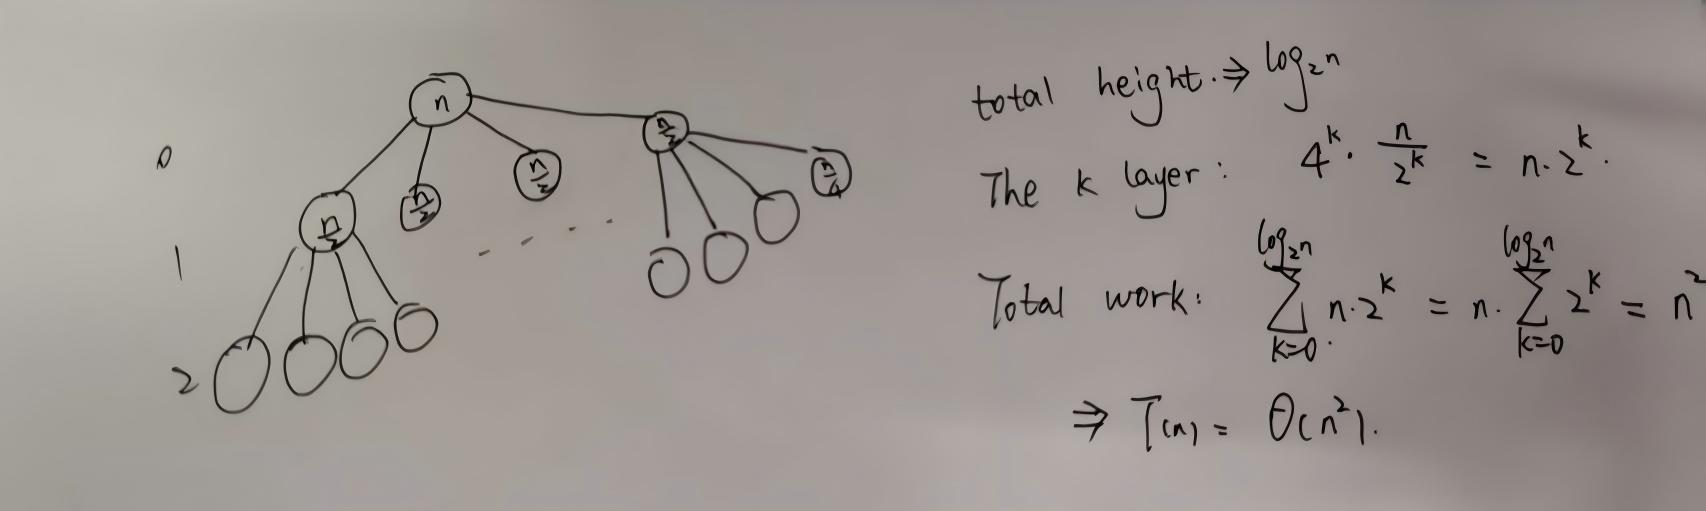 n
n/2 n/2 n/2 n/2
n/4
0
1
2
total height. ⇒ log₂n
The k layer: 4^k · n/2^k = n·2^k.
Total work: ∑_{k=0}^{log₂n} n·2^k = n·∑_{k=0}^{log₂n} 2^k = n²
⇒ T(n) = Θ(n²).